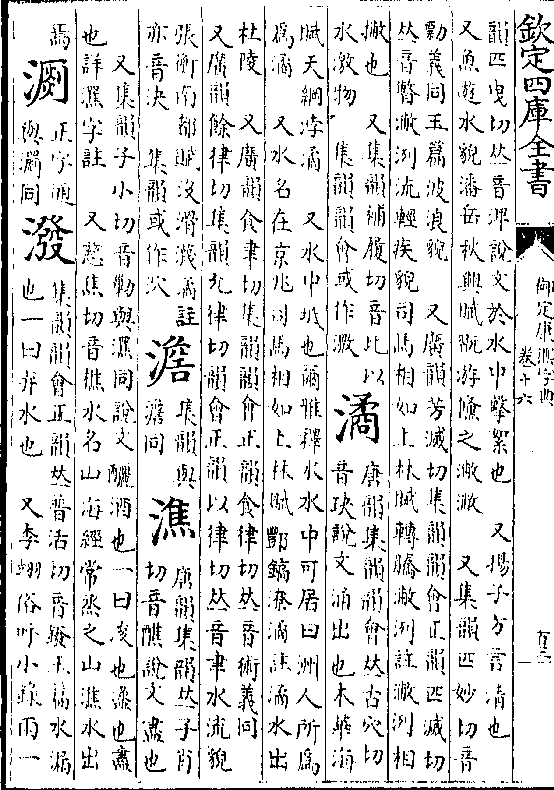 欽定四庫全書
御定康熙字典
卷十六
韻匹曳切𠀤音潎說文於水中擊絮也 又揚子方言清也
又魚遊水貌潘岳秋興賦玩游鯈之潎潎 又集韻匹妙切音
勡義同玉篇波浪貌 又廣韻芳滅切集韻韻會正韻匹滅切
𠀤音瞥潎洌流輕疾貌司馬相如上林賦轉騰潎洌註潎洌相
撇也 又集韻補履切音比以
水激物 集韻韻會或作㵥
潏 唐韻集韻韻會𠀤古穴切
音玦說文涌出也木華海
賦天綱浡潏 又水中坻也爾雅釋水水中可居曰洲人所為
為潏 又水名在京兆司馬相如上林賦酆鎬潦潏註潏水出
杜陵 又廣韻食聿切集韻韻會正韻食律切𠀤音術義同
又廣韻餘律切集韻允律切韻會正韻以律切𠀤音聿水流貌
張衡南都賦沒滑瀎潏註
亦音決 集韻或作泬
澹 集韻與
澹同
潐 唐韻集韻𠀤子肖
切音醮說文盡也
又集韻子小切音勦與灚同說文釃酒也一曰浚也盝也盡
也詳灚字註 又慈焦切音樵水名山海經常烝之山潐水出
焉
㵎 正字通
與澗同
潑 集韻韻會正韻𠀤普活切音鏺玉篇水漏
也一曰弃水也 又李翊俗呼小錄雨一